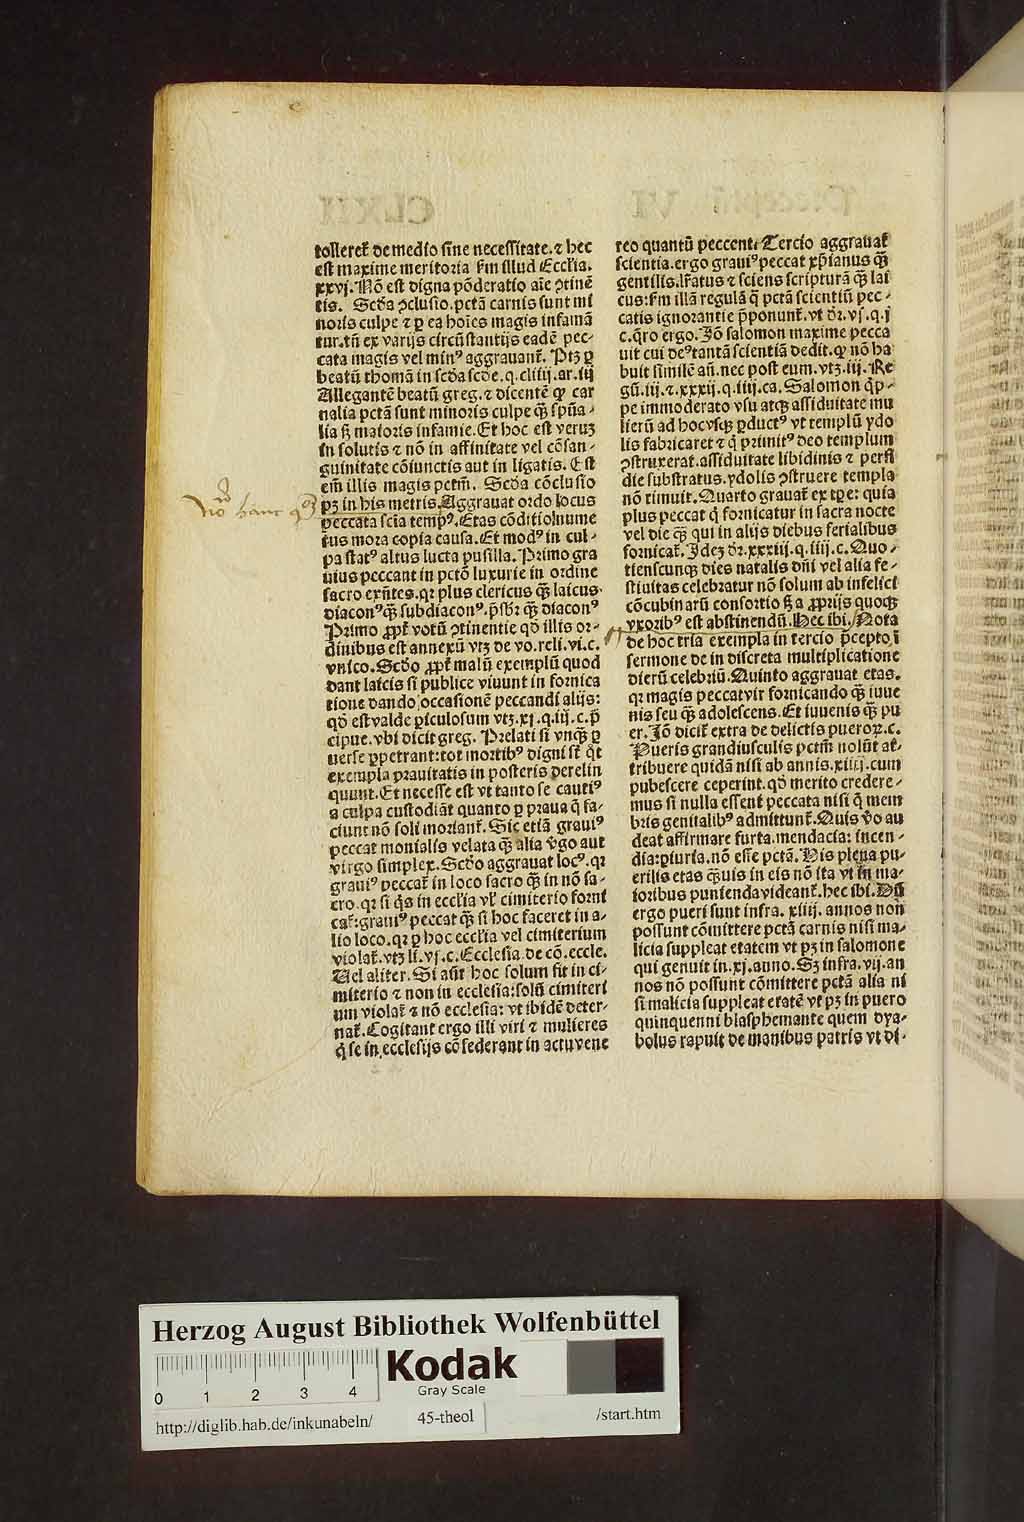 tolleret̃ de medio sine necessitate. ⁊ hec
est maxime meritoria s̃m illud Eccl̃ia.
xxvj. Nõ est digna põderatio aĩe ꝯtinẽ
tis. Scd̃a ꝯclusio. pctã carnis sunt mi
noris culpe ⁊ ꝑ ea hoĩes magis infamã
tur. tñ ex varijs circũstantijs eadẽ pec-
cata magis vel minꝰ aggrauant̃. Ptꝫ ꝑ
beatũ thomã in scd̃a scd̃e. q. cliiij. ar. iij
Allegantẽ beatũ greg. ⁊ dicentẽ ꝙ car
nalia pctã sunt minoris culpe q̃ȝ sp̃ũa-
lia sȝ maioris infamie. Et hoc est veruȝ
in solutis ⁊ nõ in affinitate vel cõsan-
guinitate cõiunctis aut in ligatis. Est
em̃ illis magis petm̃. Scd̃a cõclusio
pȝ in his metris. Aggrauat ordo locus
peccata scĩa tempꝰ. Etas cõditio nume
rus mora copia causa. Et modꝰ in cul-
pa statꝰ altus lucta pusilla. Primo gra
uius peccant in pctõ luxurie in ordine
sacro exñtes. qr plus clericus q̃ȝ laicus
diaconꝰ q̃ȝ subdiaconꝰ. p̃sbr̃ q̃ȝ diaconꝰ
Primo ꝓpt̃ votũ ꝯtinentie qd̃ illis or-
dinibus est annexũ vtȝ de vo. reli. vi. c.
vnico. Scd̃o ꝓpt̃ malũ exemplũ quod
dant laicis si publice viuunt in fornica
tione dando occasionẽ peccandi alijs:
qd̃ est valde ꝑiculosum vtȝ. xj. q. iij. c. p̃
cipue. vbi dicit greg. Prelati si vnq̃ȝ ꝑ
uerse ꝑpetrant: tot mortibꝰ digni st̃ q̃t
exempla prauitatis in posteris derelin
quunt. Et necesse est vt tanto se cautiꝰ
a culpa custodiãt quanto ꝑ praua q̃ fa-
ciunt nõ soli moriant̃. Sic etiã grauiꝰ
peccat monialis velata q̃ȝ alia v̾go aut
virgo simplex. Scd̃o aggrauat locꝰ. qr
grauiꝰ peccat̃ in loco sacro q̃ȝ in nõ sa-
cro. qr si q̃s in eccl̃ia vl̃ cimiterio forni
cat̃: grauiꝰ peccat q̃ȝ si hoc faceret in a-
lio loco. qr ꝑ hoc eccl̃ia vel cimiterium
violat̃. vtȝ li. vj. c. Ecclesia de cõ. eccle.
Uel aliter. Si aũt hoc solum fit in ci-
miterio ⁊ non in ecclesia: solũ cimiteri
um violat̃ ⁊ nõ ecclesia: vt ibidẽ deter-
nat̃. Cogitant ergo illi viri ⁊ mulieres
q̃ se in ecclesijs cõfederant in actu vene
reo quantũ peccent. Tercio aggrauat̃
scientia. ergo grauiꝰ peccat xp̃ianus q̃ȝ
gentilis. lr̃atus ⁊ sciens scripturã q̃ȝ lai
cus: s̃m illã regulã q̃ pctã scientiũ pec-
catis ignorantie p̃ponunt̃. vt dr̃. vj. q. j
c. q̃ro ergo. Iõ salomon maxime pecca
uit cui deꝰ tantã scientiã dedit. ꝙ nõ ha
buit similẽ añ. nec post eum. vtȝ. iij. Re
gũ. iij. ⁊. xxxij. q. iiij. ca. Salomon q̃p-
pe immoderato vsu atqȝ assiduitate mu
lierũ ad hoc vsqȝ ꝑductꝰ vt templũ ydo
lis fabricaret ⁊ q̃ primitꝰ deo templum
ꝯstruxerat. assiduitate libidinis ⁊ perfi
die substratus. ydolis ꝯstruere templa
nõ timuit. Quarto grauat̃ ex tp̃e: quia
plus peccat q̃ fornicatur in sacra nocte
vel die q̃ȝ qui in alijs diebus ferialibus
fornicat̃. Ideȝ dr̃. xxxiij. q. iiij. c. Quo-
tienscunqȝ dies natalis dñi vel alia fe-
stiuitas celebratur nõ solum ab infelici
cõcubinarũ consortio sȝ a ꝓprijs quoqȝ
vxoribꝰ est abstinendũ. Hec ibi. Nota
de hoc tria exempla in tercio p̃cepto ĩ
sermone de in discreta multiplicatione
dierũ celebriũ. Quinto aggrauat etas.
qr magis peccat vir fornicando q̃ȝ iuue
nis seu q̃ȝ adolescens. Et iuuenis q̃ȝ pu
er. Iõ dicit̃ extra de delictis pueroꝝ. c.
Pueris grandiusculis pctm̃ nolũt at̃-
tribuere quidã nisi ab annis. xiiij. cum
pubescere ceperint. qd̃ merito credere-
mus si nulla essent peccata nisi q̃ mem
bris genitalibꝰ admittunt̃. Quis v̾o au
deat affirmare furta. mendacia: incen-
dia: ꝑiuria. nõ esse pctã. His plena pu-
erilis etas q̃ȝuis in eis nõ ita vt in ma-
ioribus punienda videant̃. hec ibi. Dũ
ergo pueri sunt infra. xiiij. annos non
possunt cõmittere pctã carnis nisi ma-
licia suppleat etatem vt pȝ in salomone
qui genuit in. xj. anno. Sȝ infra. vij. an
nos nõ possunt cõmittere pctã alia ni
si malicia suppleat etatẽ vt pȝ in puero
quinquenni blasphemante quem dya-
bolus rapuit de manibus patris vt di-
Herzog August Bibliothek Wolfenbüttel
Kodak
Gray Scale
0 1 2 3 4
http://diglib.hab.de/inkunabeln/ 45-theol /start.htm